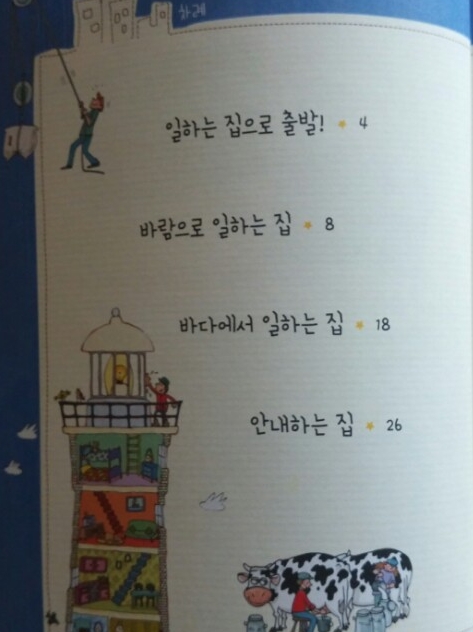 차례
일하는 집으로 출발! 4
바람으로 일하는 집 8
바다에서 일하는 집 18
안내하는 집 26